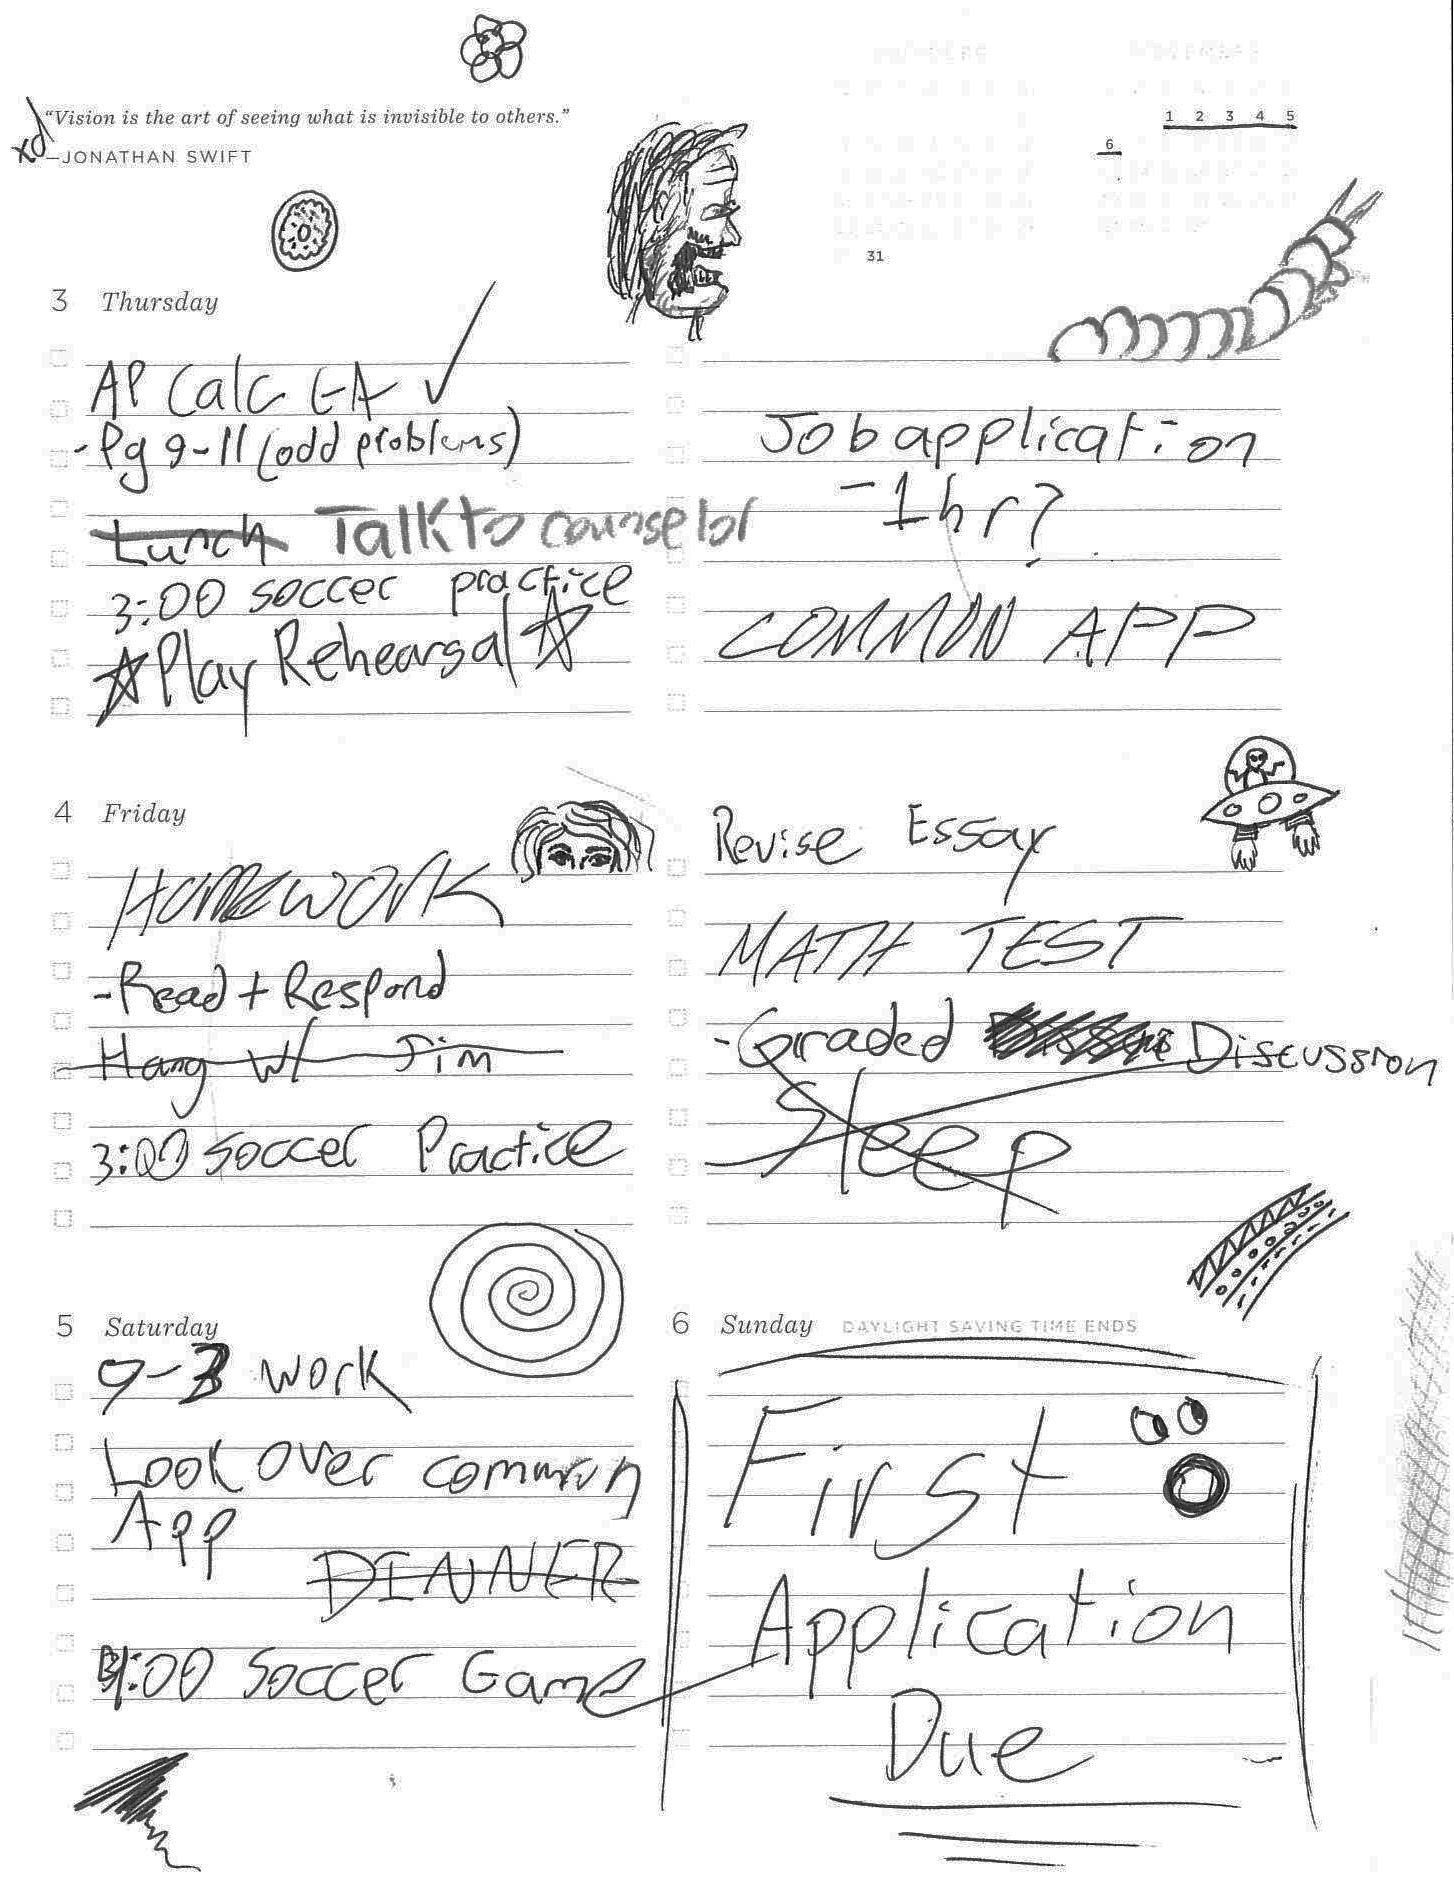 "Vision is the art of seeing what is invisible to others."
xd
—JONATHAN SWIFT
1 2 3 4 5
6
31
3 Thursday
AP Calc
- Pg 9-11 (odd problems)
Lunch Talk to counselor
3:00 soccer practice
Play Rehearsal
Job application
- 1 hr?
COMMON APP
4 Friday
HOMEWORK
- Read + Respond
Hang w/ Jim
3:00 soccer Practice
Revise Essay
MATH TEST
- Graded Discussion
Sleep
5 Saturday
9-3 work
Look over common
App
DINNER
:00 Soccer Game
6 Sunday DAYLIGHT SAVING TIME ENDS
First
Application
Due